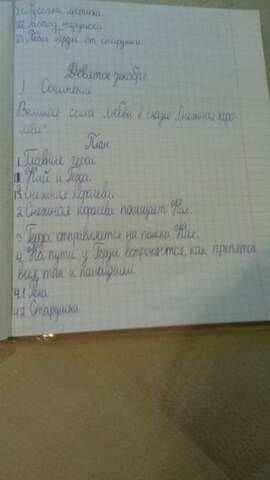 2.2 Монолог нарцисса
2.3 Побег Герды от старушки.
Девятое декабря.
Сочинение
Великая сила любви в сказке „Снежная коро-
лева“.
План
1. Главные герои.
Кай и Герда.
Снежная королева.
2. Снежная королева похищает Кая.
3. Герда отправляется на поиски Кая.
4. На пути у Герды встречаются, как препятст
вия, так и помощники
4.1 Река.
4.2 Старушка.